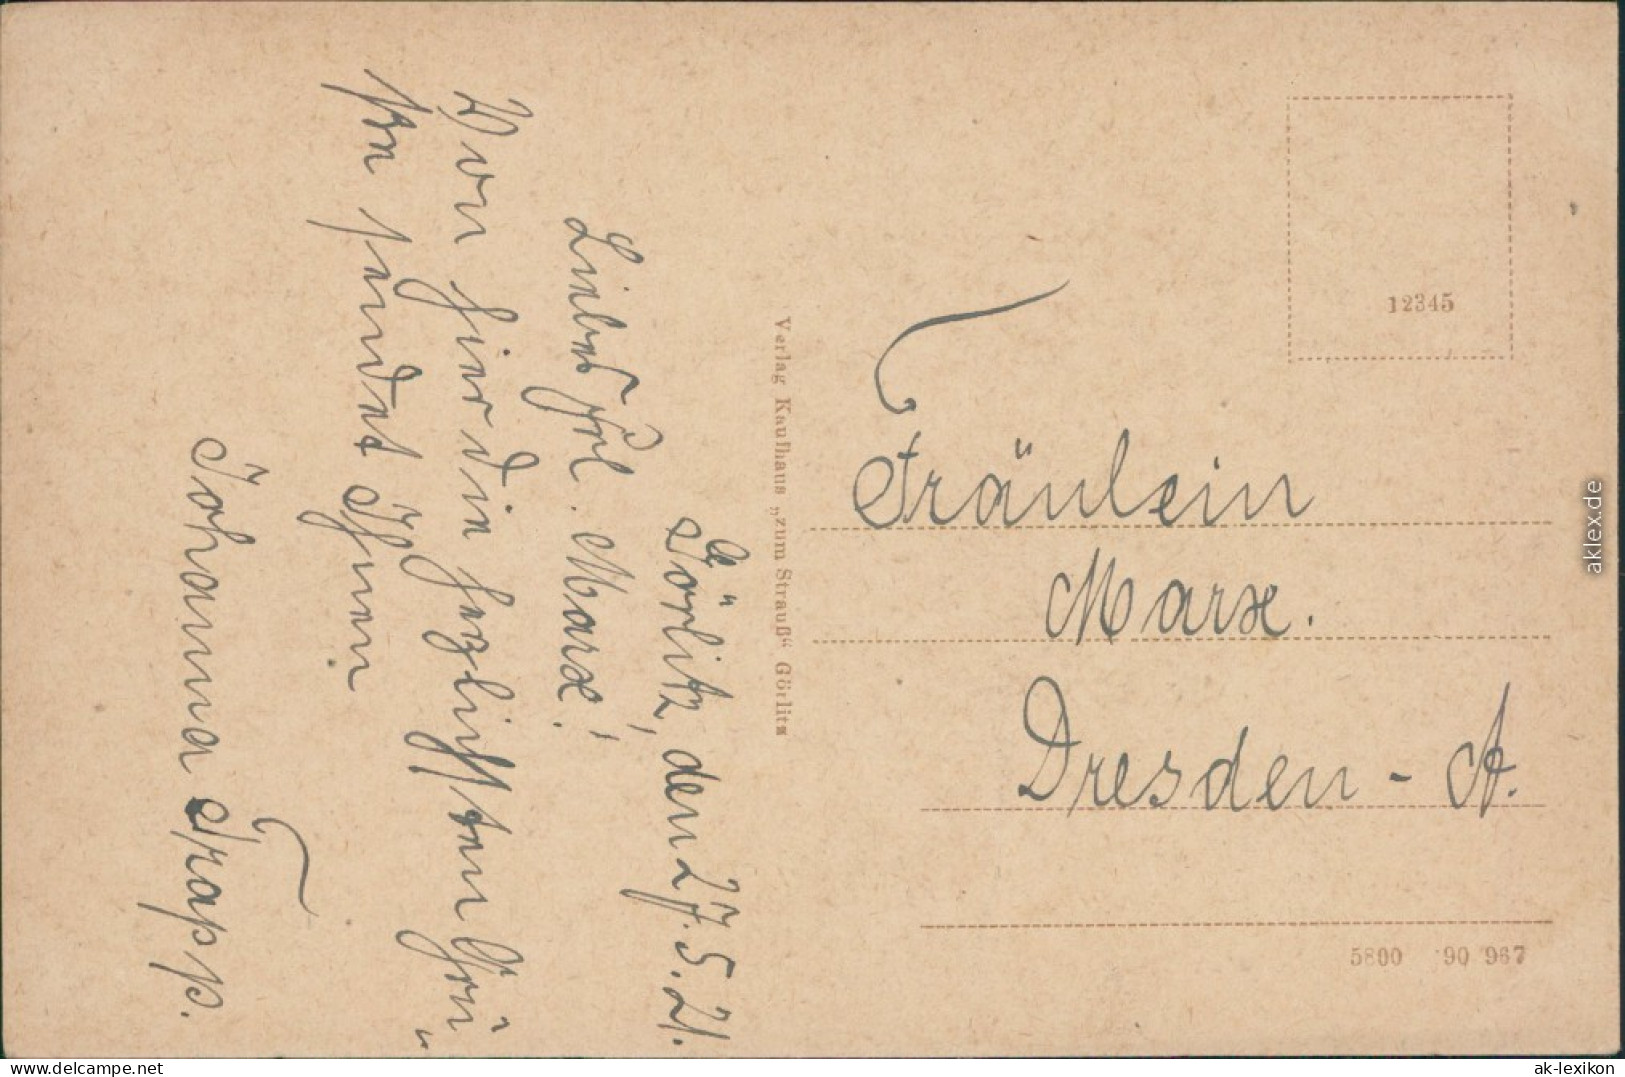 Görlitz, den 27.5.21.
Liebes Frl. Marx!
Von hier die herzlichsten Grü-
ße sendet Ihnen
Johanna Trapp.
Verlag Kaufhaus „zum Strauß“ Görlitz
12345
Fräulein
Marx.
Dresden - A.
5800 90 967
aklex.de
www.delcampe.net
ak-lexikon